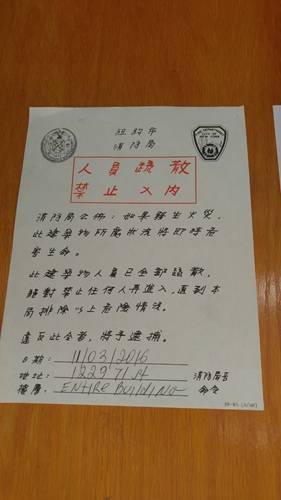 紐約市
消防局
人員疏散
禁止入內
消防局公佈：如果發生火災，
此建築物所處狀況將即時危
害生命。
此建築物人員已全部疏散，
絕對禁止任何人再進入，直到本
局排除以上危險情況。
違反此令者，將予逮捕。
日期： 11/03/2016
地址： 1229 71 st
消防局長
樓層： ENTIRE BUILDING 命令